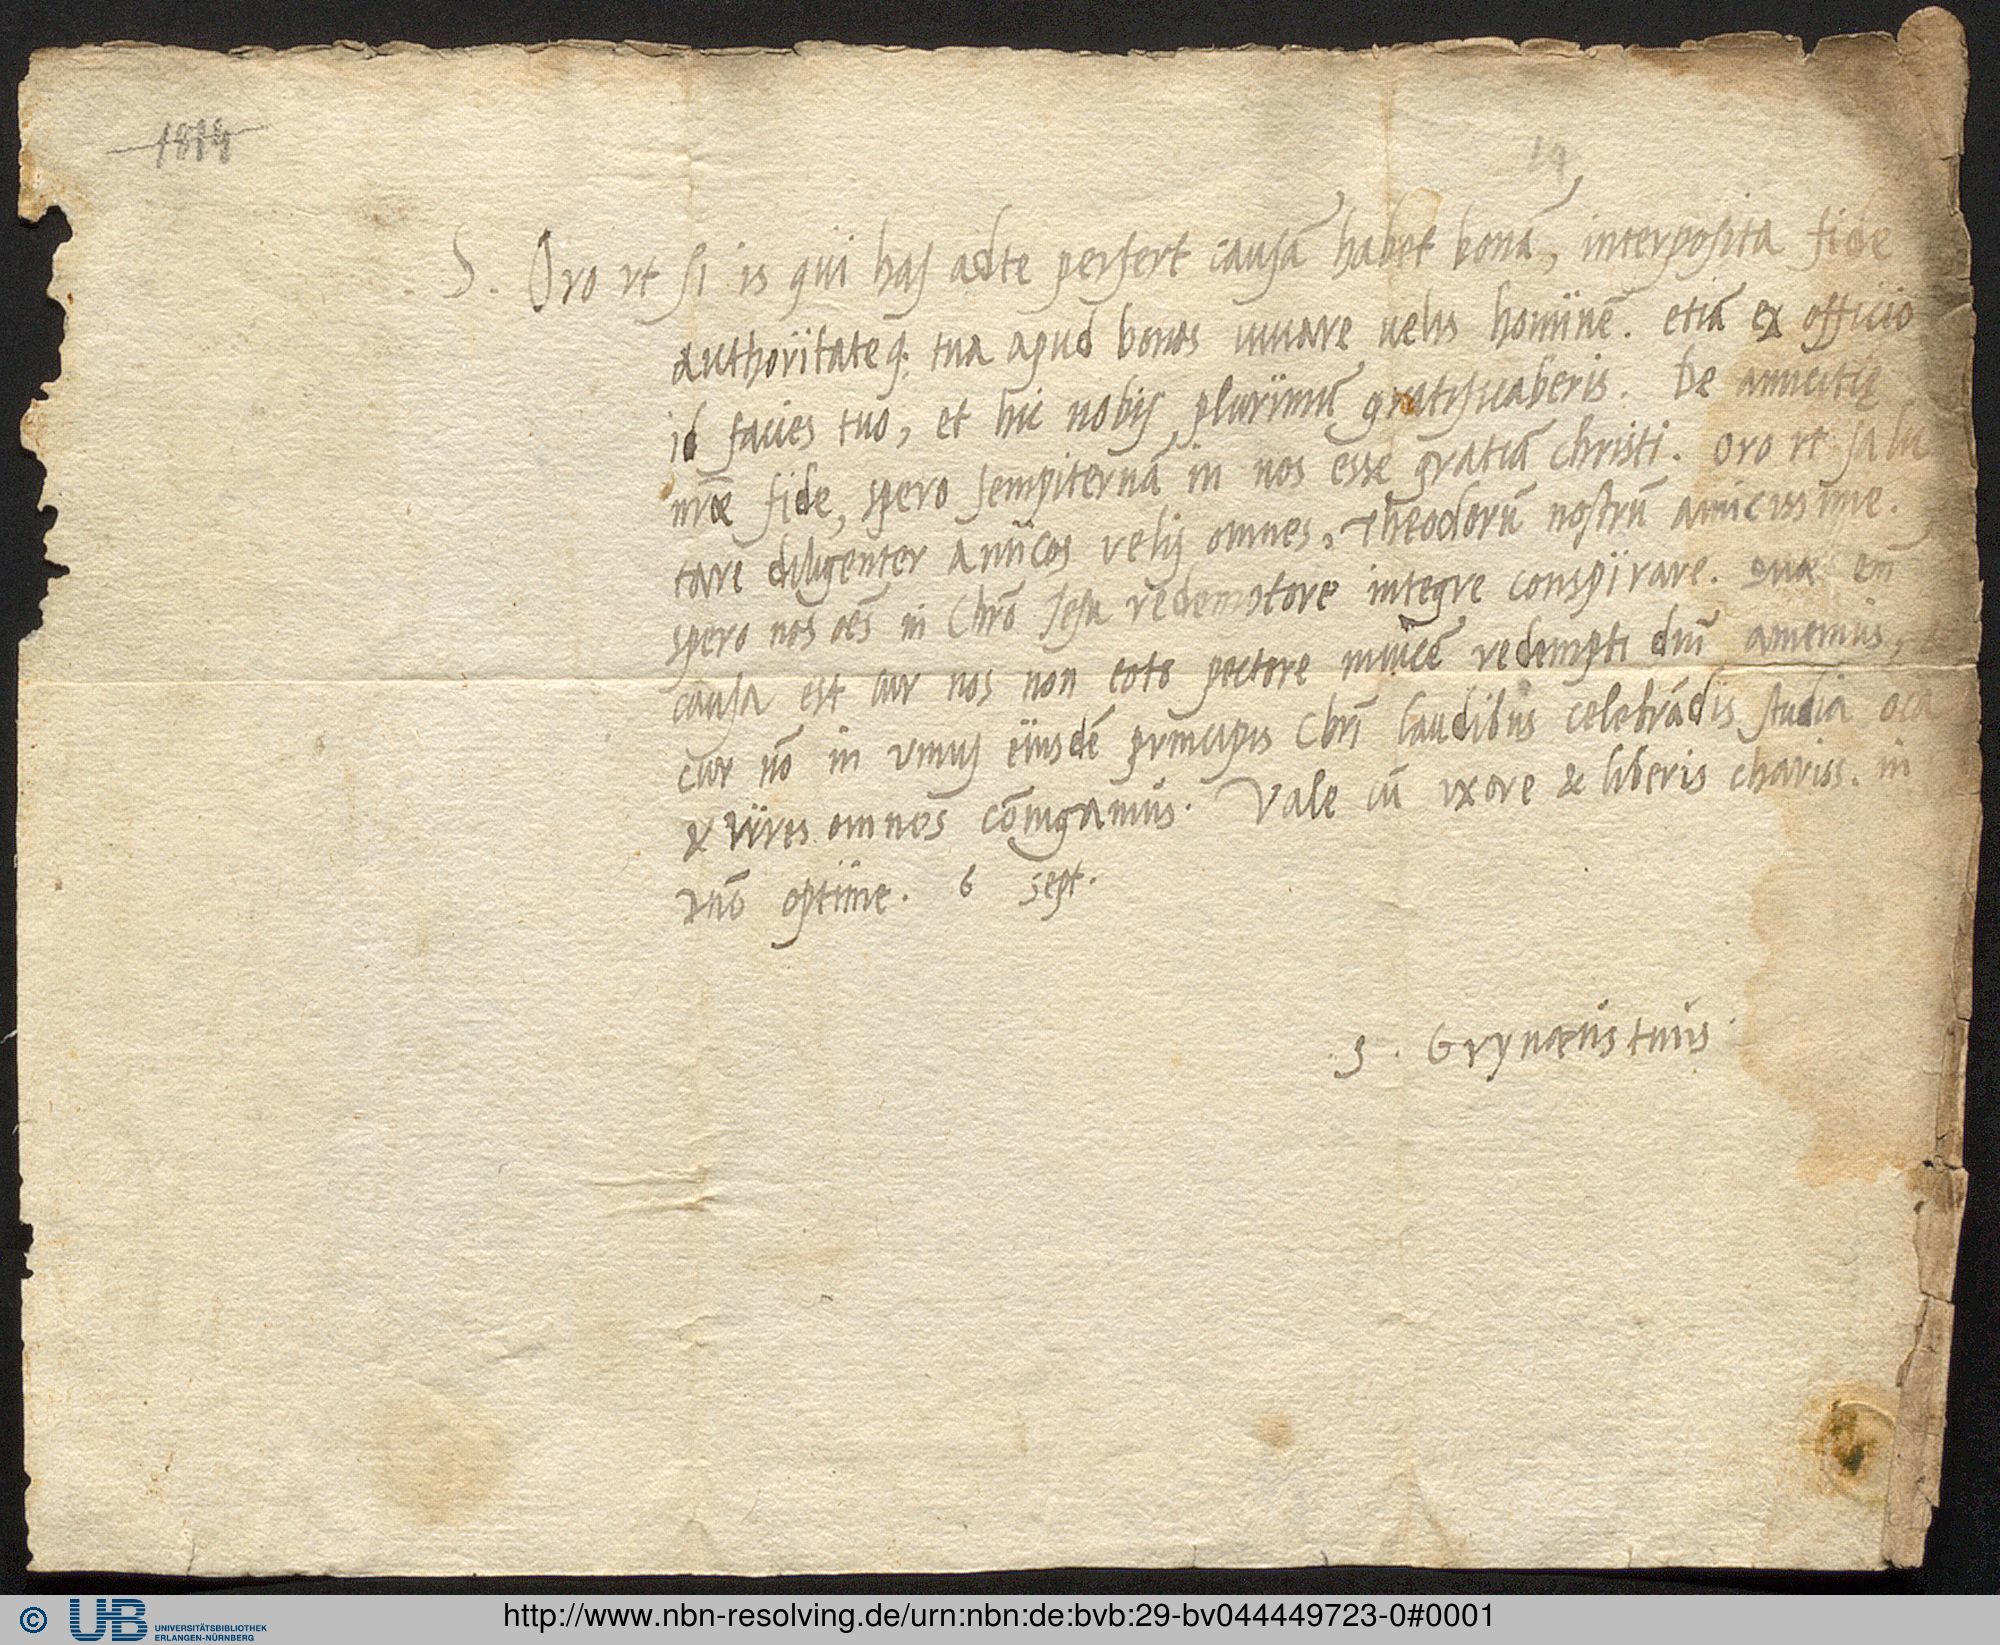 1814
19
S. Oro vt si is qui has ad te perfert causã habet bonã, interposita fide
authoritateq; tua apud bonos iuuare uelis hominẽ. etiã ex officio
id facies tuo, et hic nobis plurimũ gratificaberis. De amicitię
nr̃æ fide, spero sempiternã in nos esse gratiã christi. oro vt salu
tare diligenter amicos velis omnes, Theodorũ nostrũ amicissime.
spero nos oẽs in Chrõ Jesu redemptore integre conspirare. quæ em̃
causa est cur nos non toto pectore inuicẽ redempti dũ amemus,
cur nõ in vnius eiusdẽ principis Chrĩ laudibus celebrãdis studia oĩa
& vires omnes cõiugamus. Vale cũ vxore & liberis chariss. in
dño optime. 6 sept.
S. Grynæus tuus.
© UB UNIVERSITÄTSBIBLIOTHEK
ERLANGEN-NÜRNBERG
http://www.nbn-resolving.de/urn:nbn:de:bvb:29-bv044449723-0#0001